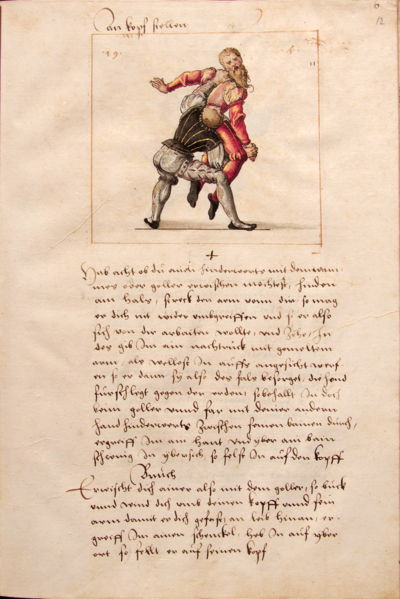 an kopf stellen
12
19.
Hab acht ob du ainen hinderwerts mit dem wam
mes oder goller erwischen mochtest, hinden
am hals, streck den arm vonn dir so mag
er dich nit wider umbgreiffen und so er also
sich von dir arbaiten wollte, und Zihe, In
der gib In ain nachtruck mit gemeltem
arm, als wollest In auffs angesicht werf
en so er dann sy also des fals besorget, die hend
fürschlegt gegen der erden, so behallt In doch
beim goller unnd far mit deiner andern
hand hinderwerts Zwischen seinen bainen durch,
ergreiff Im ain hant und yber ain bain
schwing In ybersich, so felst In auf den kopff
Bruch
Erwischt dich ainer also mit dem goller, so buck
unnd wind dich umb deinen kopff unnd sein
arm damit er dich gefast, an leib hinan, er
greiff Im ainen schenckel, heb In auf yber
ort so fellt er auf seinen kopf